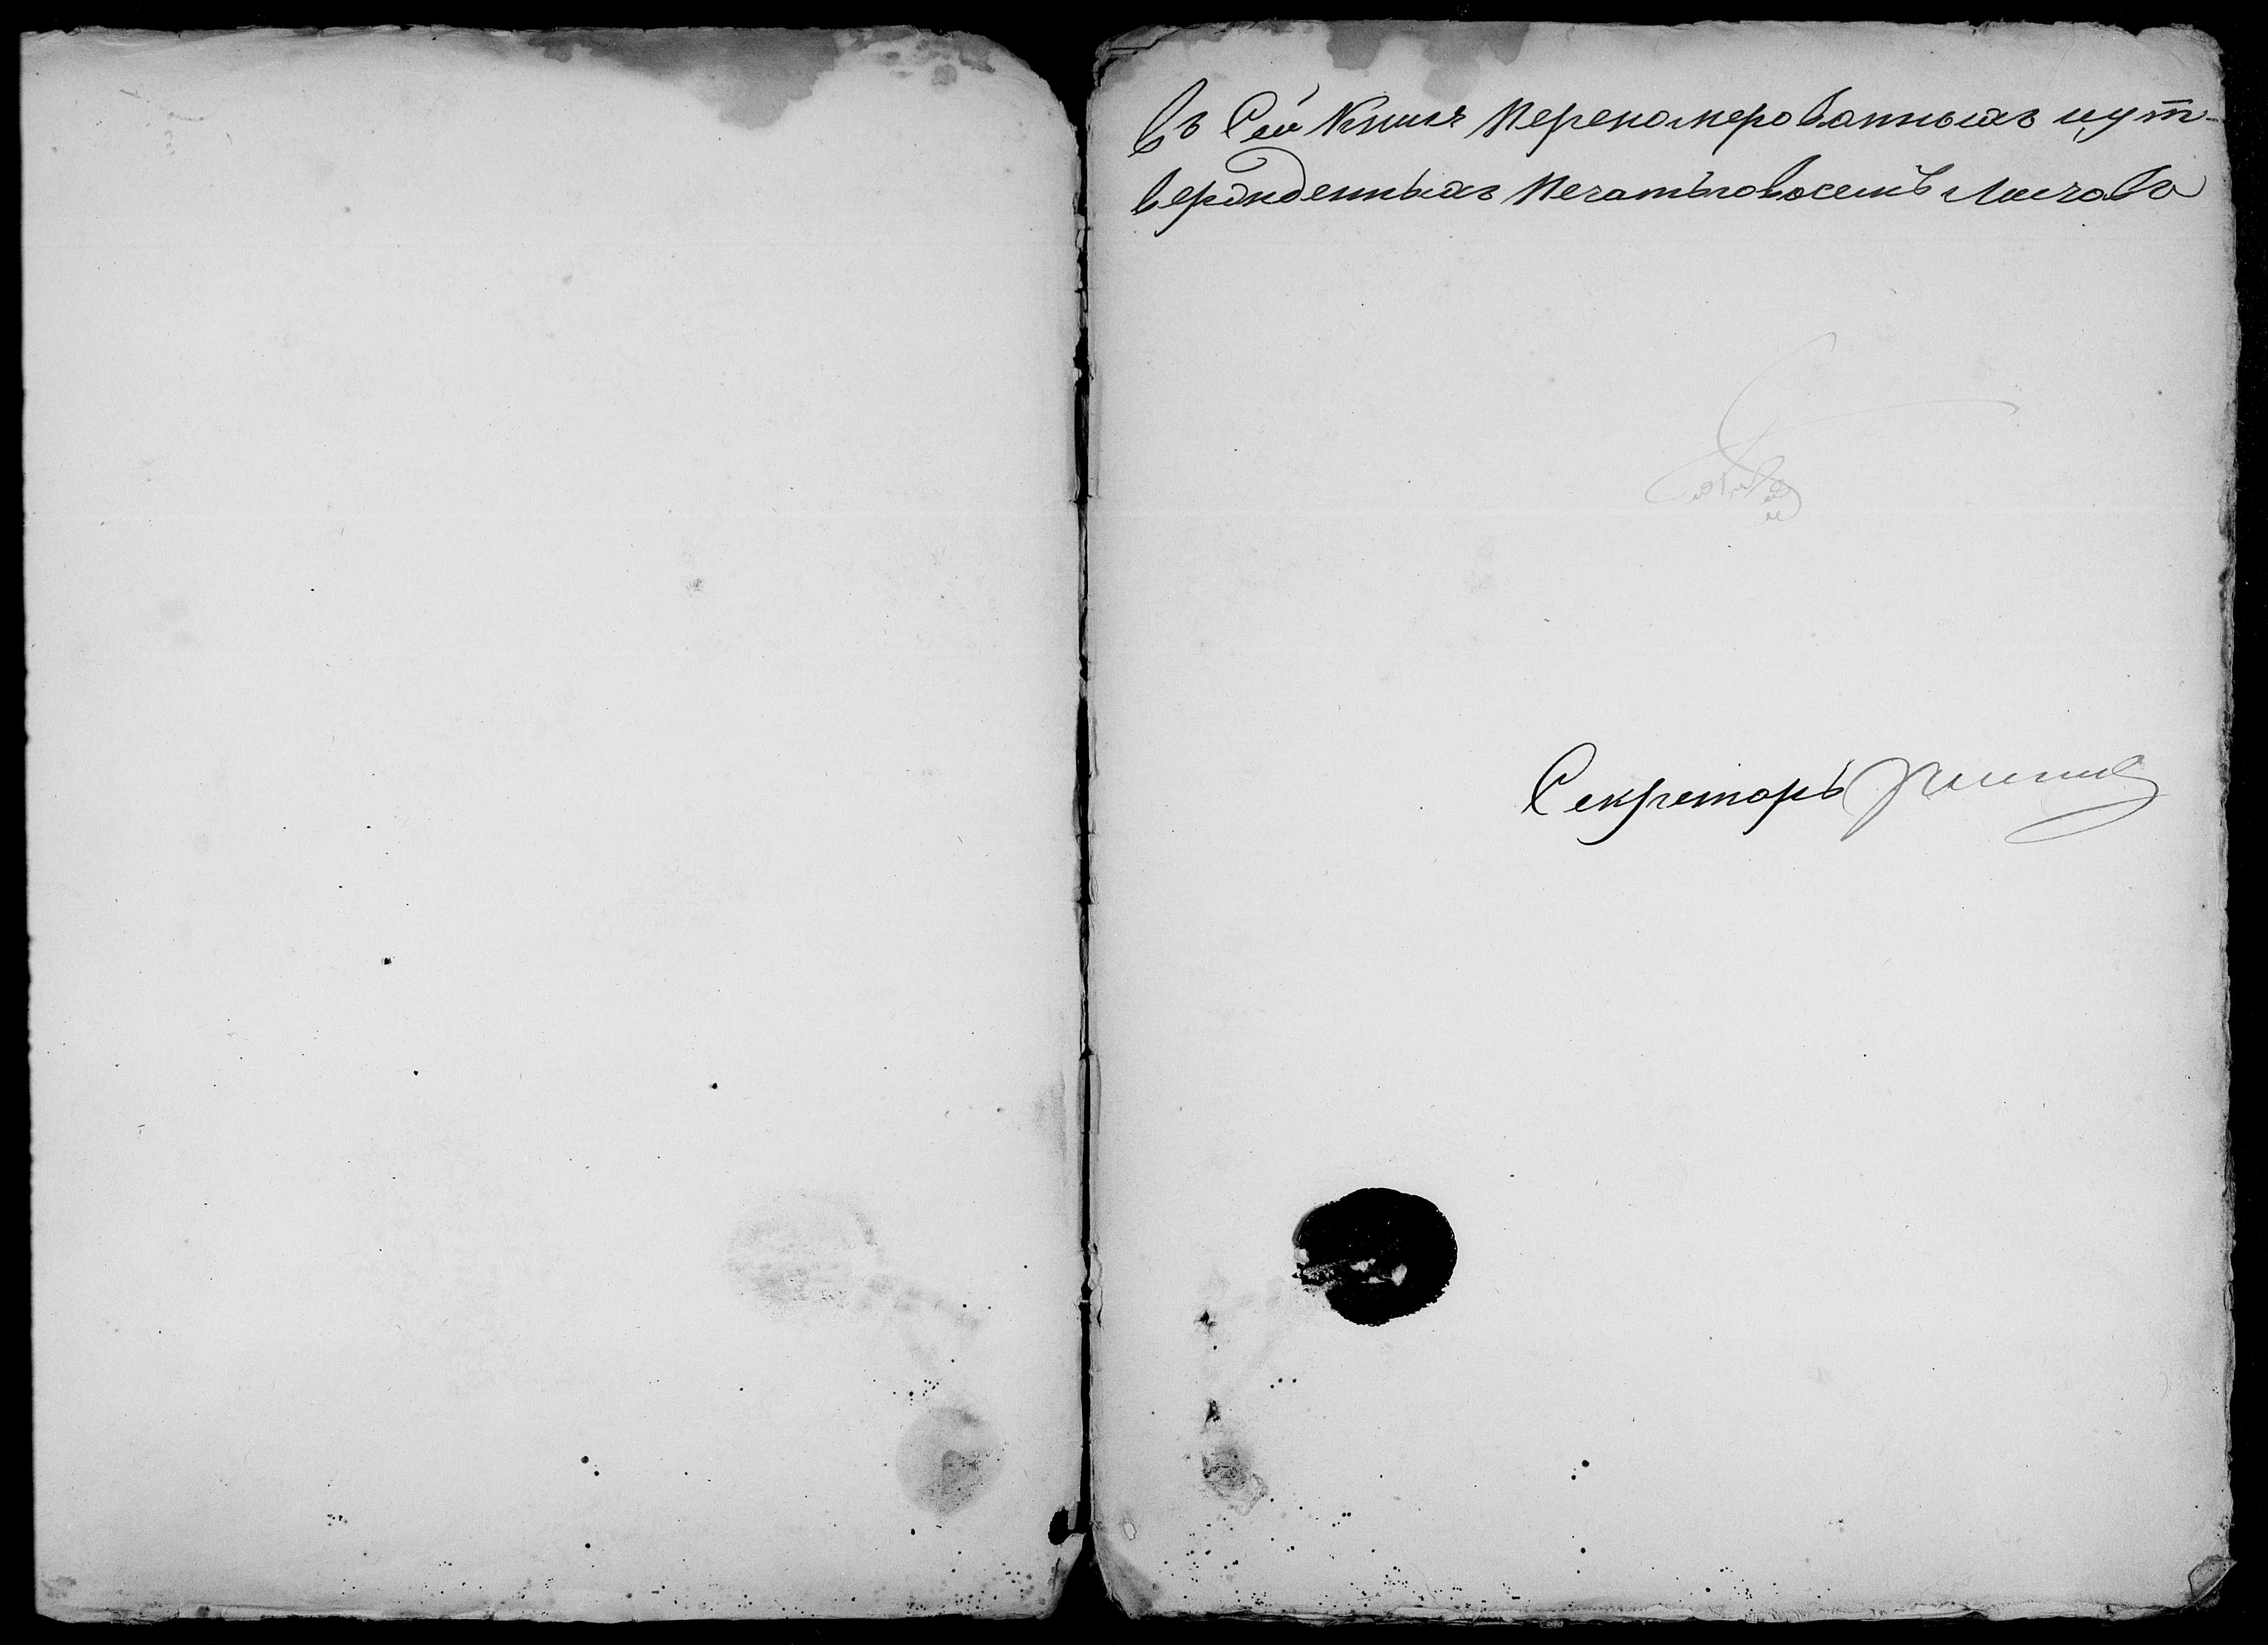 Въ Сей Книгѣ Перенумерованныхъ и ут-
вержденныхъ Печатью восемь листовъ
Секретарь